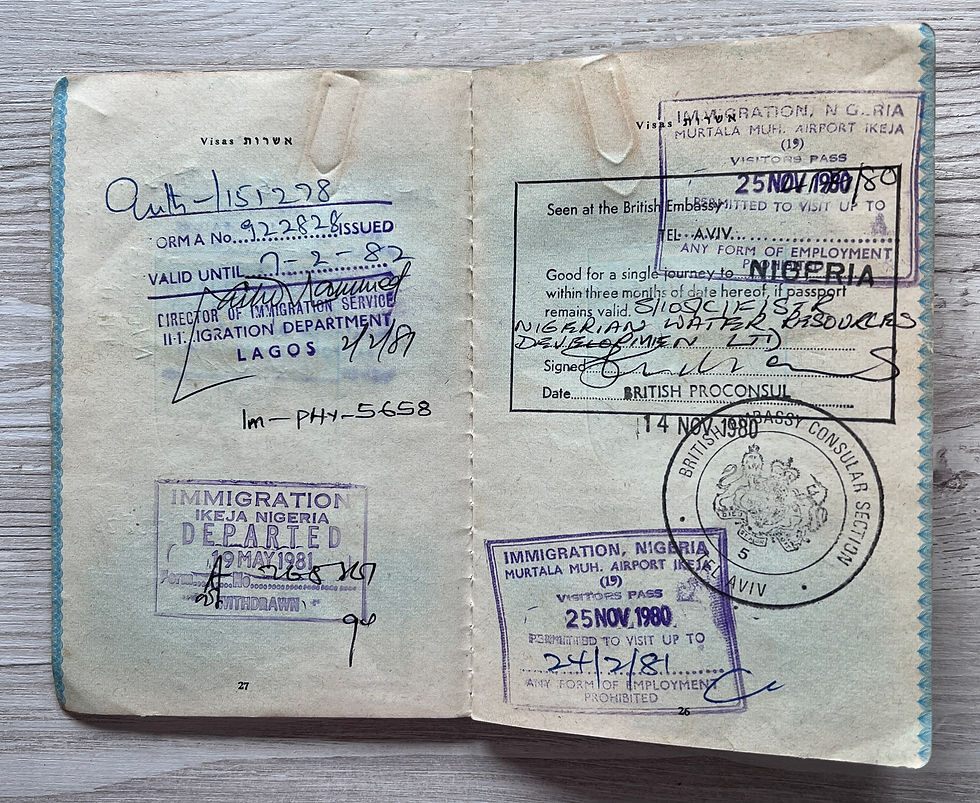 Visas אשרות
Auth-/151278
FORM A No. 922828 ISSUED
VALID UNTIL 7-2-82
DIRECTOR OF IMMIGRATION SERVICE
IGRATION DEPARTMENT
LAGOS 2/2/81
Im-PHY-5658
IMMIGRATION
IKEJA NIGERIA
DEPARTED
19 MAY 1981
Form No
WITHDRAWN
27
Visas אשרות
IMMIGRATION, NIGERIA
MURTALA MUH. AIRPORT IKEJA
(19)
VISITORS PASS
25 NOV 1980
PERMITTED TO VISIT UP TO
ANY FORM OF EMPLOYMENT
Seen at the British Embassy
TEL AVIV
Good for a single journey to NIGERIA
within three months of date hereof, if passport
remains valid.
NIGERIAN WATER RESOURCES
DEVELOPMEN LTD
Signed
Date BRITISH PROCONSUL
14 NOV 1980
BRITISH EMBASSY CONSULAR SECTION
TEL AVIV
5
IMMIGRATION, NIGERIA
MURTALA MUH. AIRPORT IKEJA
(19)
VISITORS PASS
25 NOV 1980
PERMITTED TO VISIT UP TO
24/2/81
ANY FORM OF EMPLOYMENT
PROHIBITED
26